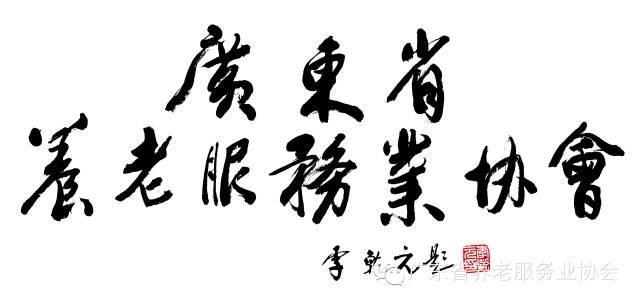 廣東省
養老服務業协會
李乾元題
广东省养老服务业协会